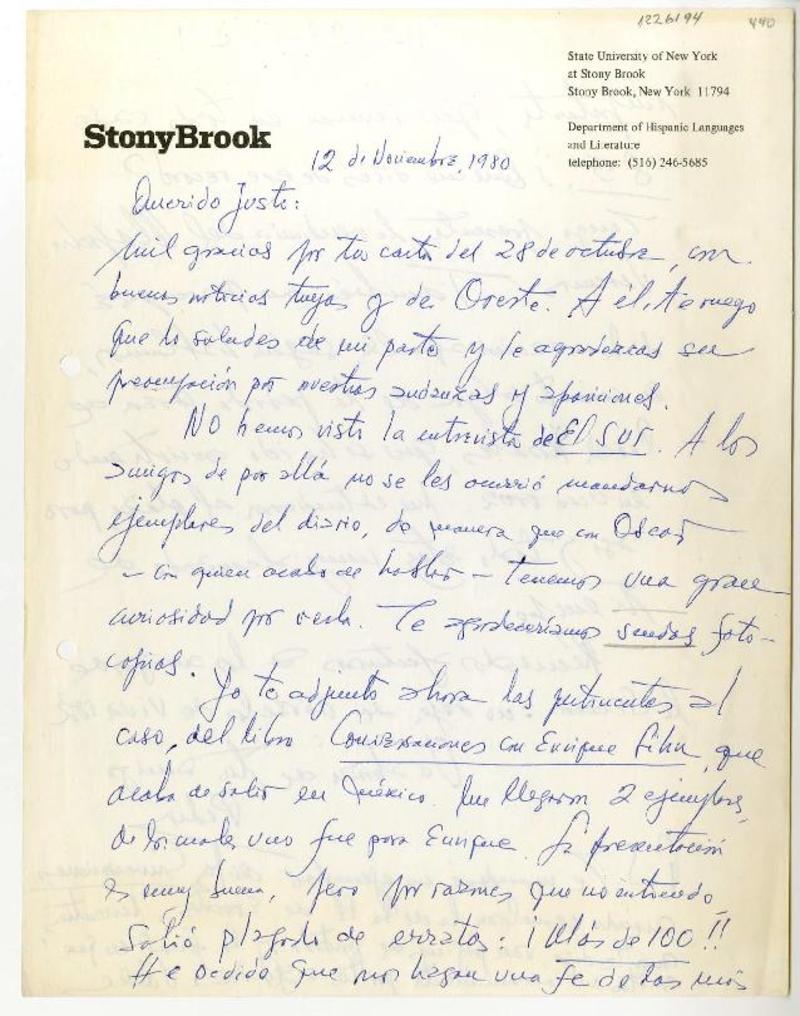 1226194
440
State University of New York
at Stony Brook
Stony Brook, New York 11794
Department of Hispanic Languages
and Literature
telephone: (516) 246-5685
StonyBrook
12 de Noviembre, 1980
Querido Justo:
Mil gracias por tu carta del 28 de octubre, con
buenas noticias tuyas y de Oreste. A él, te ruego
que lo saludes de mi parte y le agradezcas su
preocupación por nuestras andanzas y apariciones.
No hemos visto la entrevista de El Sur. A los
amigos de por allá no se les ocurrió mandarnos
ejemplares del diario, de manera que con Oscar
– con quien acabo de hablar – tenemos una gran
curiosidad por verla. Te agradeceríamos sendas foto-
copias. Yo te adjunto ahora las pertinentes al
caso, del libro Conversaciones con Enrique Lihn, que
acaba de salir en México. Me llegaron 2 ejemplares,
de los cuales uno fue para Enrique. La presentación
es muy buena, pero por razones que no entiendo
salió plagado de erratas: ¡Más de 100!!
He pedido que nos hagan una fe de las más